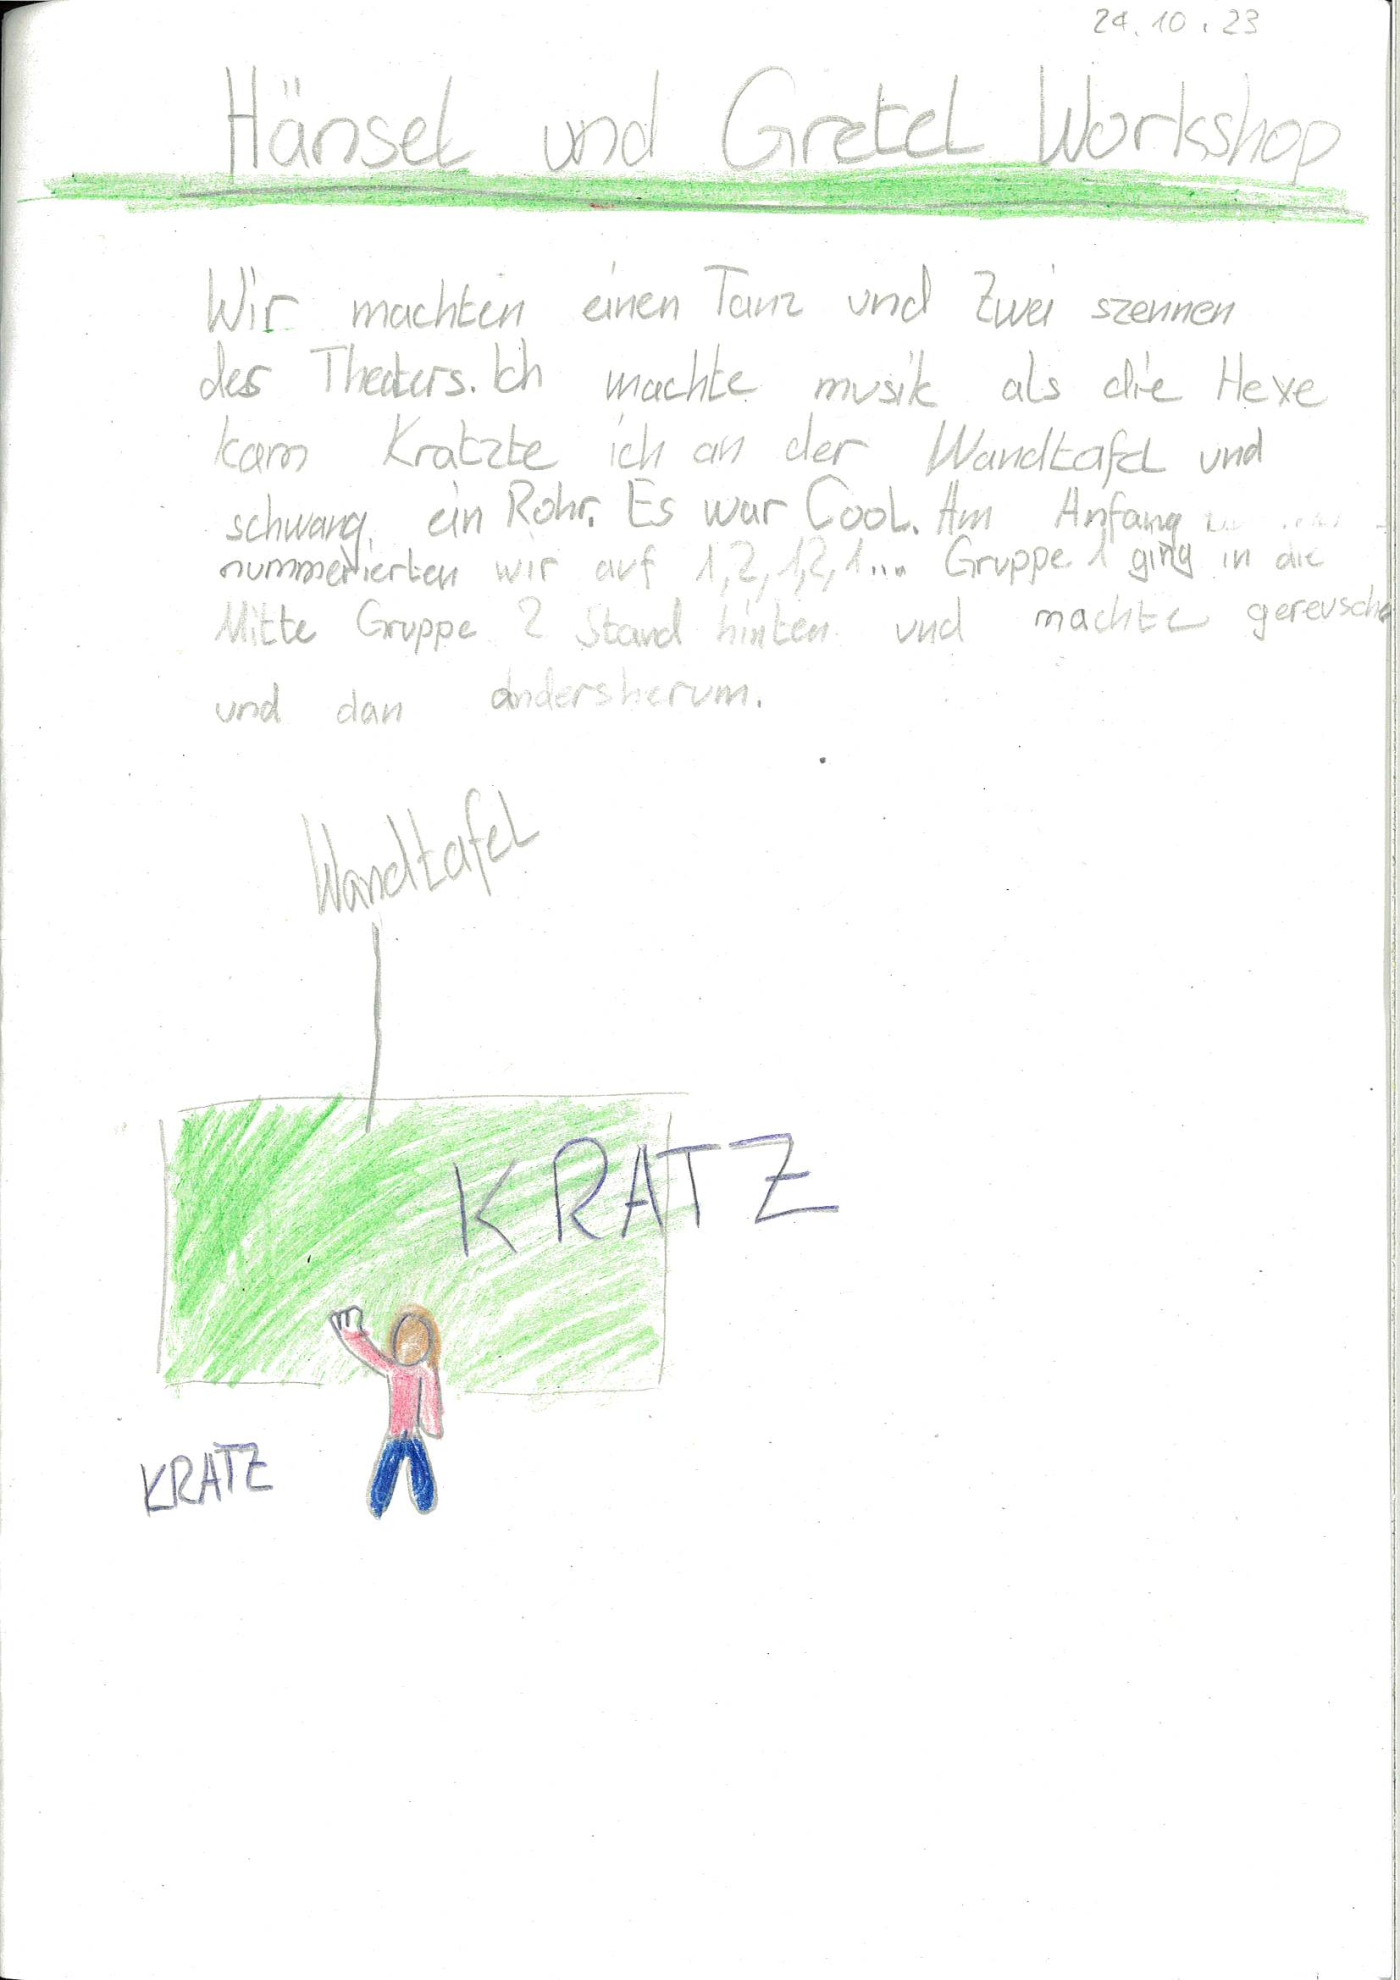 24.10.23
Hänsel und Gretel Workshop
Wir machten einen Tanz und Zwei szennen
des Theaters. Ich machte musik als die Hexe
kam Kratzte ich an der Wandtafel und
schwang ein Rohr. Es war Cool. Am Anfang
nummerierten wir auf 1,2,1,2,1... Gruppe 1 ging in die
Mitte Gruppe 2 Stand hinten und machte gereusche
und dan andersherum.
Wandtafel
KRATZ
KRATZ